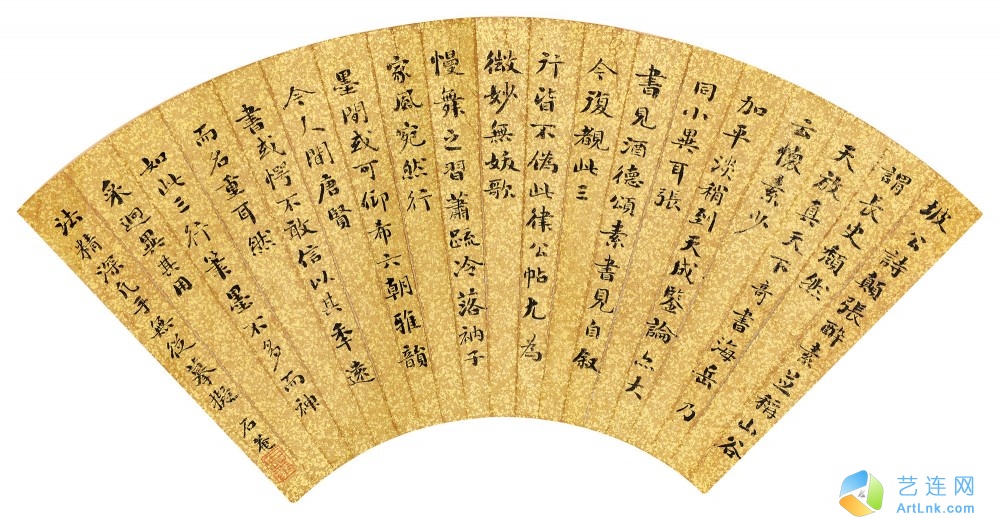 坡公詩顛張醉素並稱山谷
謂長史頹然
天放真天下奇書海岳乃
云懷素少
加平淡稍到天成鑒論亦大
同小異耳張
書見酒德頌素書見自叙
今復觀此三
行皆不偽此律公帖尤為
微妙無妖歌
慢舞之習蕭疏冷落衲子
家風宛然行
墨間或可仰希六朝雅韻
今人間唐賢
書或愕不敢信以其年遠
而名重可然
如此三行筆墨不多而神
采迥異其用
法精深凡手無從摹擬 石菴
艺连网
ArtLnk.com